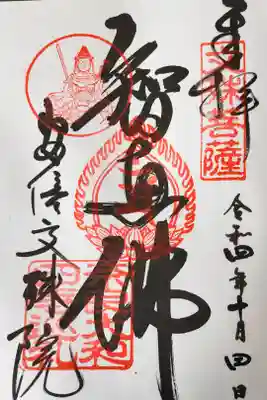 奉拝
文殊菩薩
令和四年十月四日
智恵佛
安倍文殊院